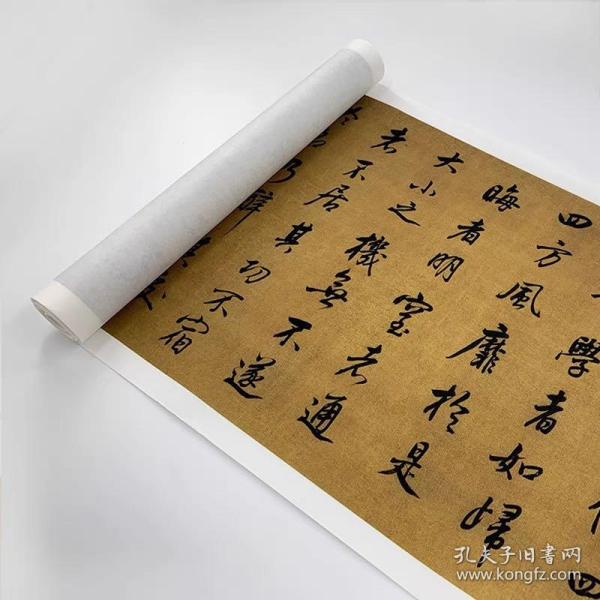 學者如歸
四方風靡於是
晦者明窒者通
大小之機無不遂
者不居其功不宿
名乃辭
孔夫子旧书网
www.kongfz.com